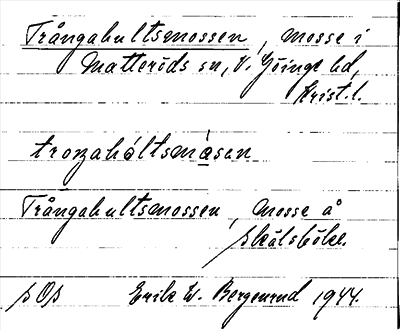 Trångahultsmossen, mosse i
Matteröds sn, V. Göinge hd,
Krist. l.
tronzahóltsmåsen
Trångahultsmossen, mosse å
skålsböke.
SOS Erik W. Bergenrud 1944.